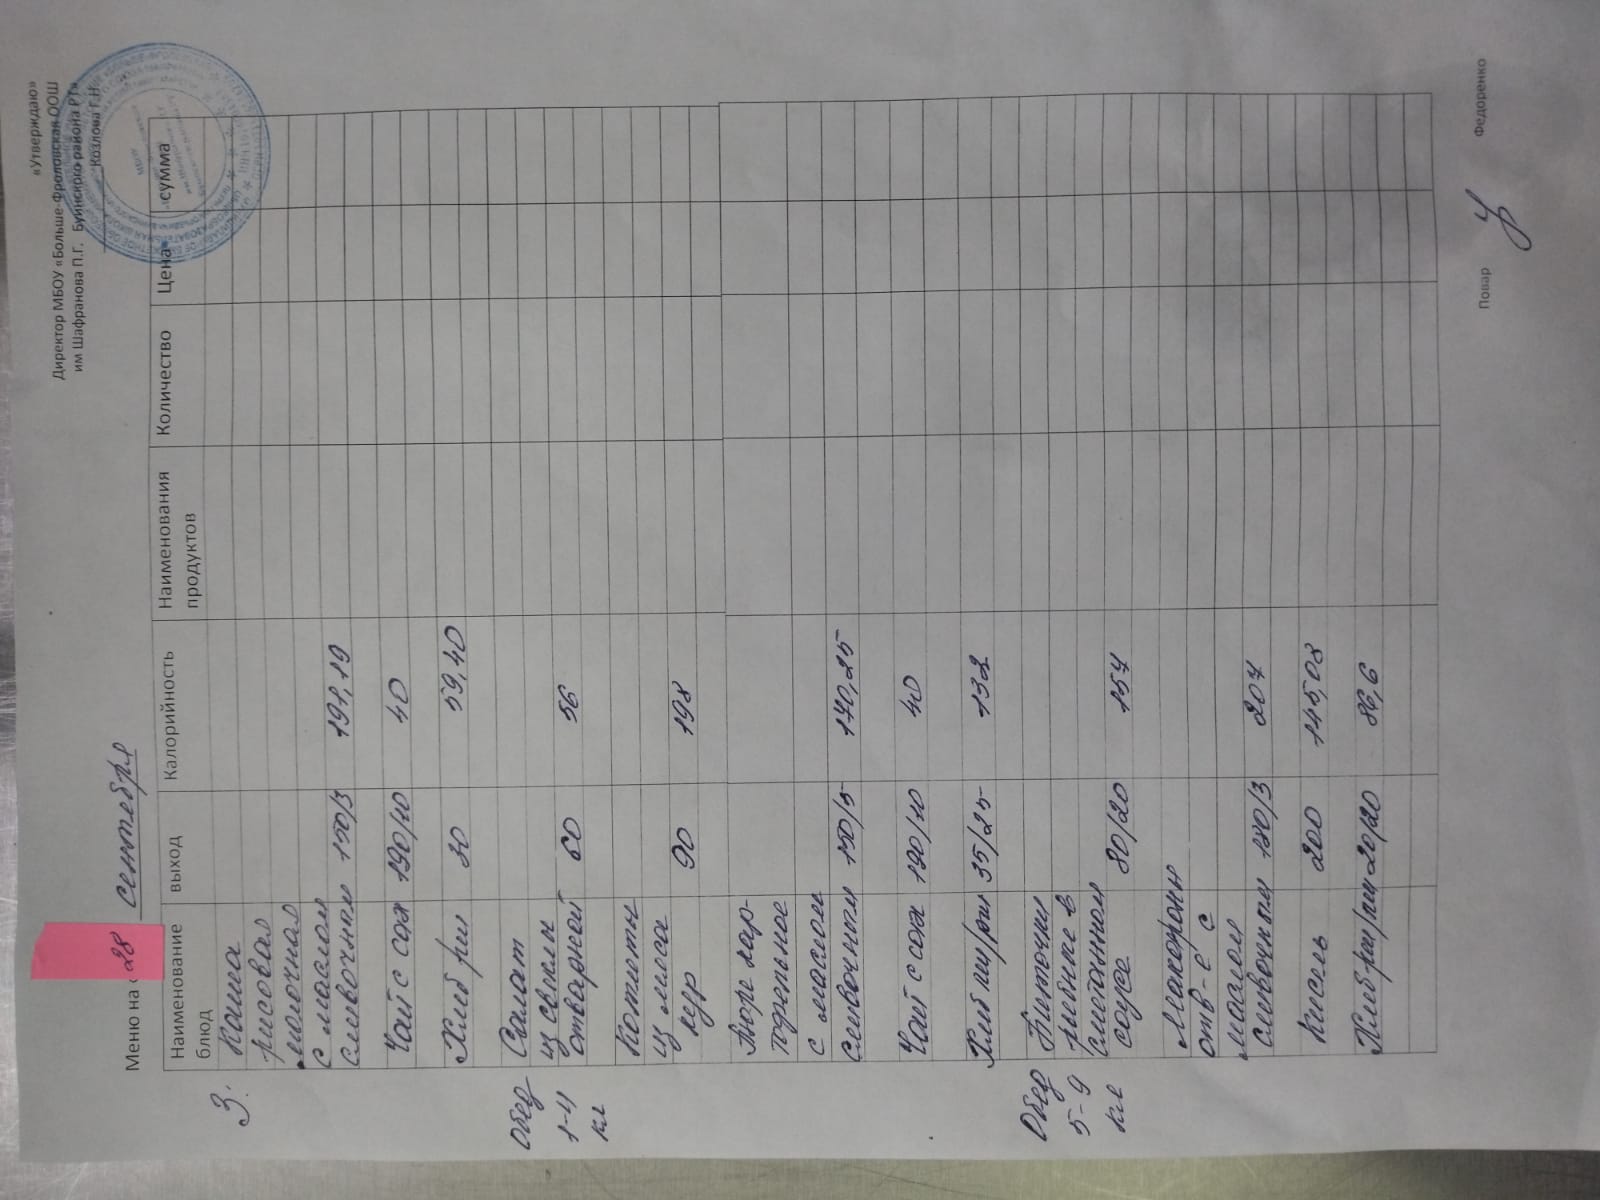 «Утверждаю»
Директор МБОУ «Больше-Фроловская ООШ
им Шафранова П.Г. Буинского района РТ»
Козлова Г.Н.
Меню на «28 сентебря
Наименование блюд выход Калорийность Наименования продуктов Количество Цена сумма
З. Каша
рисовая
молочная
с маслом
сливочным 150/3 191,19
Чай с сах 190/10 40
Хлеб рш 30 59,40
Обед Салат
1-4 из свеклы
кл отварной 60 56
Котлеты
из мяса
кер 90 198
Пюре кар-
тофельное
с маслом
сливочным 150/5 170,25
Чай с сах 190/10 40
Хлеб пш/рж 35/25 132
Обед Биточки
5-9 рыбные в
кл сметанном
соусе 80/20 157
Макароны
отв-е с
маслом
сливочным 180/3 207
Кисель 200 145,08
Хлеб рж/пш 20/20 86,6
Повар Федоренко